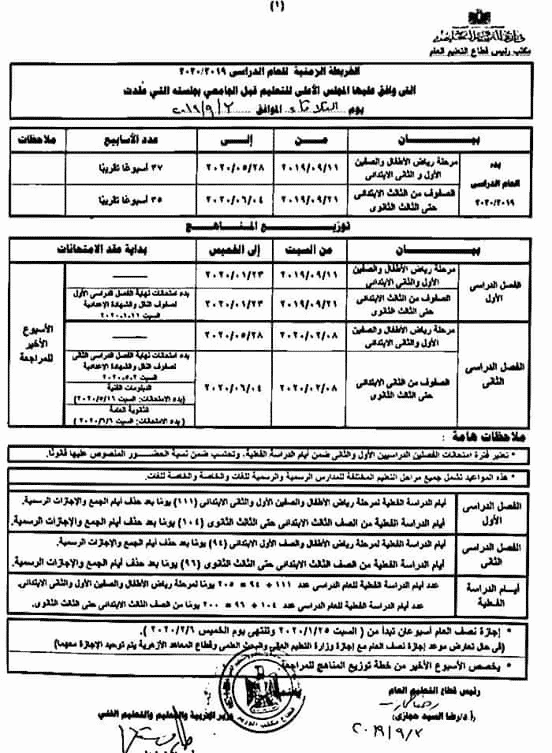 (١)
وزارة التربية والتعليم
مكتب رئيس قطاع التعليم العام
الخريطة الزمنية للعام الدراسى ٢٠٢٠/٢٠١٩
التى وافق عليها المجلس الأعلى للتعليم قبل الجامعي بجلسته التي عقدت
يوم الثلاثاء الموافق ٢٠١٩/٩/٣
بيــان مــن إلــى عدد الأسابيع ملاحظات
بدء العام الدراسى ٢٠٢٠/٢٠١٩
مرحلة رياض الأطفال والصفين الأول و الثانى الابتدائى ٢٠١٩/٠٩/١١ ٢٠٢٠/٠٥/٢٨ ٣٧ أسبوعا تقريبًا
الصفوف من الثالث الابتدائى حتى الثالث الثانوى ٢٠١٩/٠٩/٢١ ٢٠٢٠/٠٦/٠٤ ٣٥ أسبوعًا تقريبًا
توزيـع المنـاهـج
بيــان من السبت إلى الخميس بداية عقد الامتحانات
الفصل الدراسى الأول
مرحلة رياض الأطفال والصفين الأول والثانى الابتدائى ٢٠١٩/٠٩/١١ ٢٠٢٠/٠١/٢٣
الصفوف من الثالث الابتدائى حتى الثالث الثانوى ٢٠١٩/٠٩/٢١ ٢٠٢٠/٠١/٢٣
بدء امتحانات نهاية الفصل الدراسى الأول
لصفوف النقل والشهادة الإعدادية
الأسبوع الأخير للمراجعة
الفصل الدراسى الثانى
مرحلة رياض الأطفال والصفين الأول والثانى الابتدائى ٢٠٢٠/٠٢/٠٨ ٢٠٢٠/٠٥/٢٨
الصفوف من الثالث الابتدائى حتى الثالث الثانوى ٢٠٢٠/٠٢/٠٨ ٢٠٢٠/٠٦/٠٤
بدء امتحانات نهاية الفصل الدراسى الثانى
لصفوف النقل والشهادة الإعدادية
الدبلومات الفنية
(بدء الامتحانات: السبت ٢٠٢٠/٥/١٦)
الثانوية العامة
(بدء الامتحانات: السبت ٢٠٢٠/٦/٦)
ملاحظات هامة :
• تعتبر فترة امتحانات الفصلين الدراسيين الأول والثانى ضمن أيام الدراسة الفعلية، وتحتسب ضمن نسبة الحضور المنصوص عليها قانونًا.
• هذه المواعيد تشمل جميع مراحل التعليم المختلفة للمدارس الرسمية والرسمية للغات والخاصة والخاصة للغات.
الفصل الدراسى الأول
أيام الدراسة الفعلية لمرحلة رياض الأطفال والصفين الأول والثانى الابتدائى (١١١) يومًا بعد حذف أيام الجمع والإجازات الرسمية.
أيام الدراسة الفعلية من الصف الثالث الابتدائى حتى الثالث الثانوى (١٠٤) يومًا بعد حذف أيام الجمع والإجازات الرسمية.
الفصل الدراسى الثانى
أيام الدراسة الفعلية لمرحلة رياض الأطفال والصف الأول الابتدائى (٩٤) يومًا بعد حذف أيام الجمع والإجازات الرسمية.
أيام الدراسة الفعلية من الصف الثالث الابتدائى حتى الثالث الثانوى (٩٦) يومًا بعد حذف أيام الجمع والإجازات الرسمية.
أيـام الدراسة الفعلية
عدد أيام الدراسة الفعلية للعام الدراسى عدد ١١١ + ٩٤ = ٢٠٥ يومًا لمرحلة رياض الأطفال والصفين الأول والثانى الابتدائى.
عدد أيام الدراسة الفعلية للعام الدراسى عدد ١٠٤ + ٩٦ = ٢٠٠ يومًا من الصف الثالث الابتدائى حتى الثالث الثانوى.
• إجازة نصف العام أسبوعان تبدأ من ( السبت ٢٠٢٠/١/٢٥ وتنتهى يوم الخميس ٢٠٢٠/٢/٦ ).
(فى حال تعارض موعد إجازة نصف العام مع إجازة وزارة التعليم العالى والبحث العلمى وقطاع المعاهد الأزهرية يتم توحيد الإجازة معهما)
• يخصص الأسبوع الأخير من خطة توزيع المناهج للمراجعة.
رئيس قطاع التعليم العام
(أ.د/رضا السيد حجازى)
٢٠١٩/٩/٣
يعتمد
وزير التربية والتعليم والتعليم الفنى